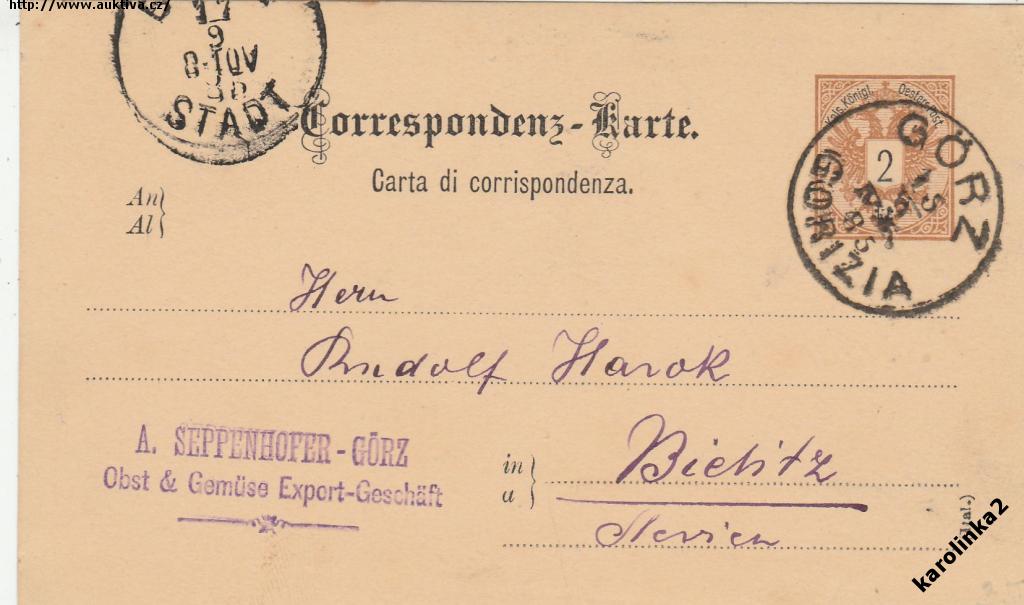 http://www.auktiva.cz/
17
9
STADT
Correspondenz-Karte.
Carta di corrispondenza.
Kais. Königl. Oesterr. Post
2
GÖRZ
GORIZIA
An
Al
Herrn
Rudolf Harok
A. SEPPENHOFER - GÖRZ
Obst & Gemüse Export-Geschäft
in
a
Bielitz
(Ital.)
karolinka2